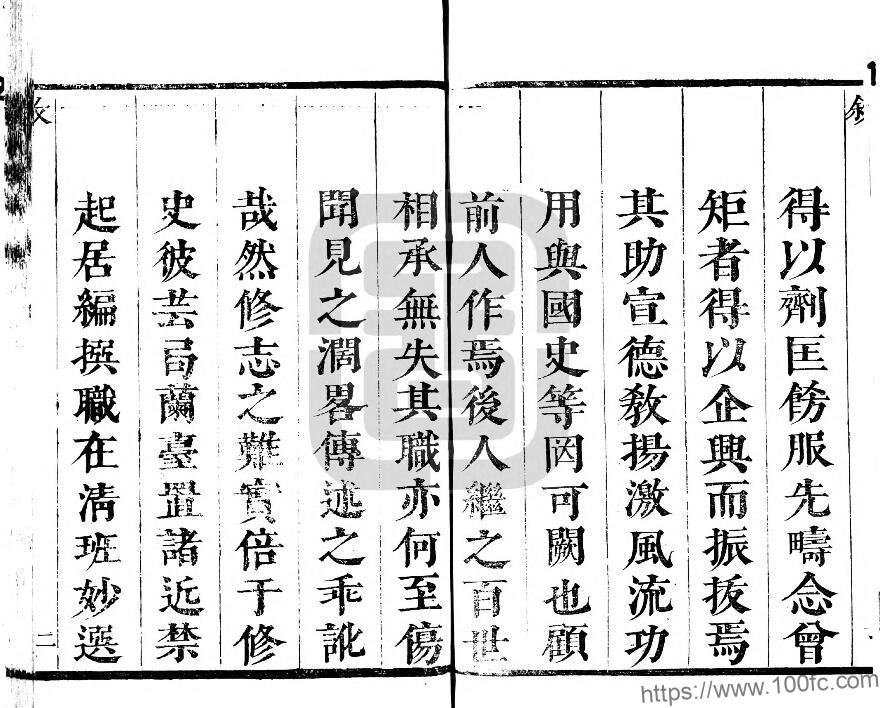 敘
得以劑匡飭服先疇念曾
矩者得以企興而振拔焉
其助宣德教揚激風流功
用與國史等罔可闕也顧
前人作焉後人繼之百世
相承無失其職亦何至傷
聞見之濶畧傳述之乖訛
哉然修志之難實倍于修
史彼芸局蘭臺置諸近禁
起居編撰職在清班妙選
二
1
https://www.100fc.com